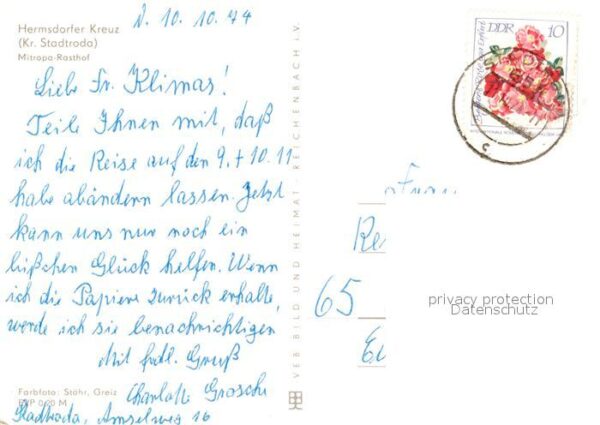 d. 10.10.74
Hermsdorfer Kreuz
(Kr. Stadtroda)
Mitropa-Rasthof
Liebe Fr. Klimas!
Teile Ihnen mit, daß
ich die Reise auf den 9.+10.11
habe abändern lassen. Jetzt
kann uns nur noch ein
bißchen Glück helfen. Wenn
ich die Papiere zurück erhalte,
werde ich sie benachrichtigen
Mit frdl. Gruß
Charlott Grosch
Stadtroda, Amselweg 16
Farbfoto: Stöhr, Greiz
EVP 0,20 M
VEB BILD UND HEIMAT · REICHENBACH I.V.
DDR 10
Frau
65
privacy protection
Datenschutz